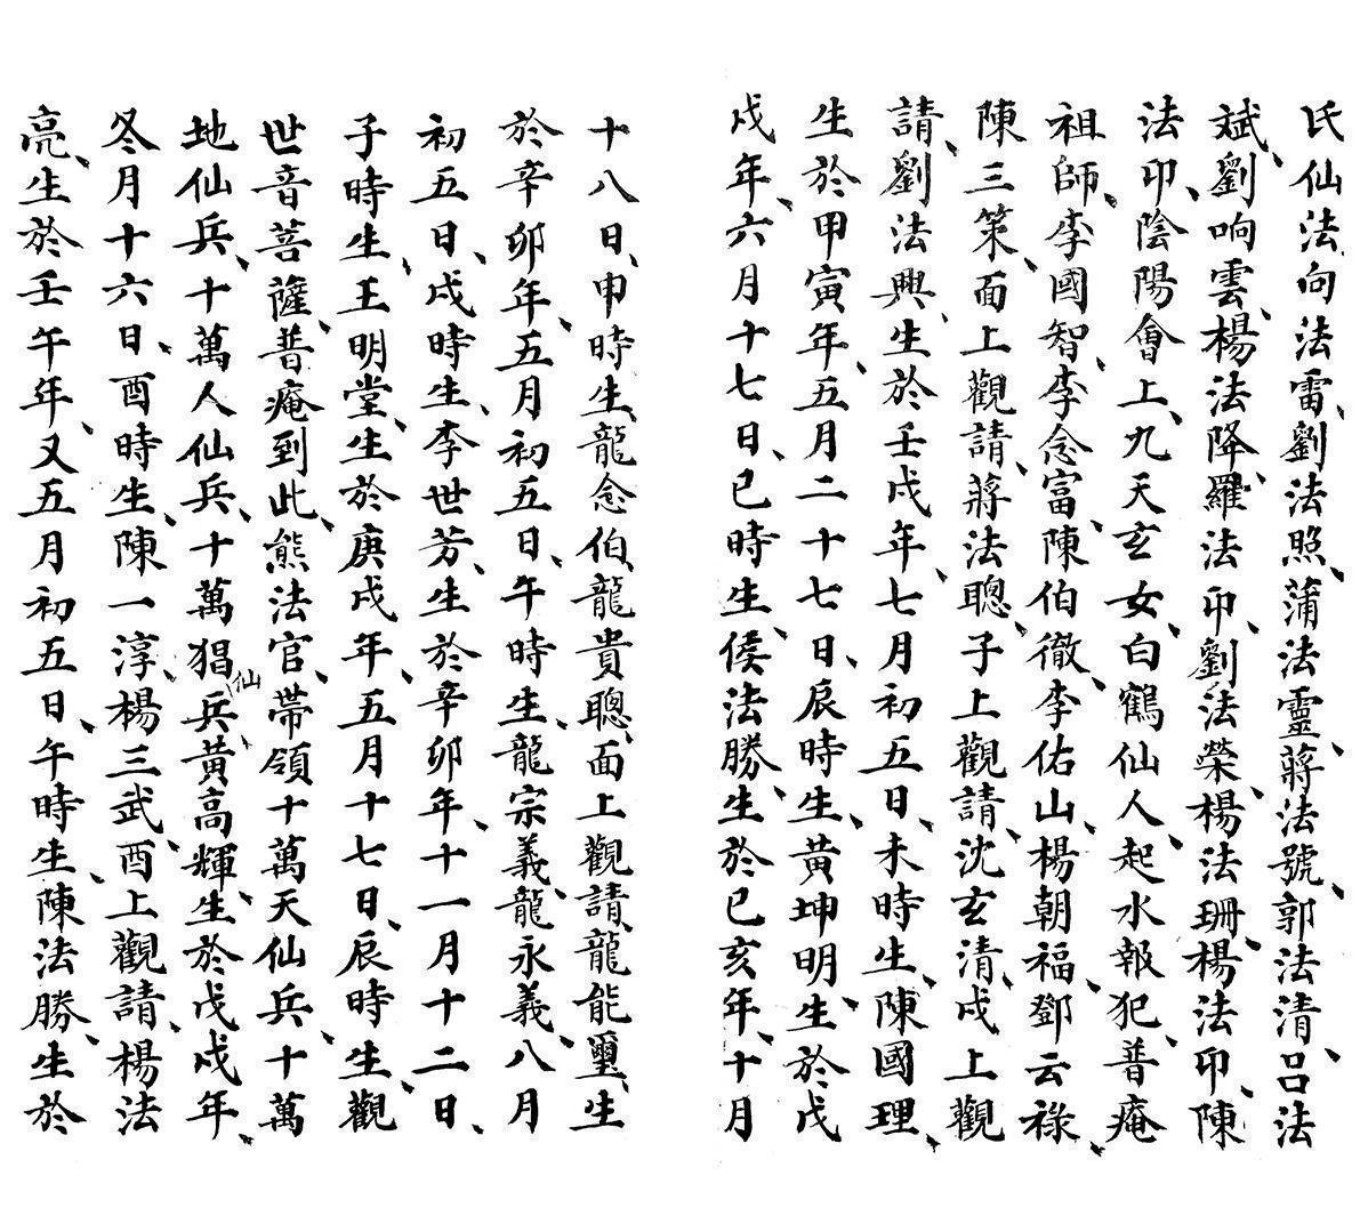 氏仙法向法雷、劉法照、蒲法靈、蔣法號、郭法清、呂法
斌、劉响雲、楊法降、羅法印、劉法榮、楊法珊、楊法印、陳
法印、陰陽會上、九天玄女、白鶴仙人、起水報犯、普庵
祖師、李國智、李念富、陳伯徹、李佑山、楊朝福、鄧云祿、
陳三策、面上觀請、蔣法聰、子上觀請、沈玄清、戌上觀
請、劉法興、生於壬戌年、七月初五日、未時生、陳國理、
生於甲寅年、五月二十七日、辰時生、黃坤明、生於戊
戌年、六月十七日、已時生、侯法勝、生於已亥年、十月
十八日、申時生、龍念伯、龍貴聰、面上觀請、龍能璽、生
於辛卯年、五月初五日、午時生、龍宗義、龍永義、八月
初五日、戌時生、李世芳、生於辛卯年、十一月十二日、
子時生、王明堂、生於庚戌年、五月十七日、辰時生、觀
世音菩薩、普庵到此、熊法官、帶領十萬天仙兵、十萬
地仙兵、十萬人仙兵、十萬猖仙兵、黃高輝、生於戊戌年、
冬月十六日、酉時生、陳一淳、楊三武、酉上觀請、楊法
亮、生於壬午年、又五月初五日、午時生、陳法勝、生於